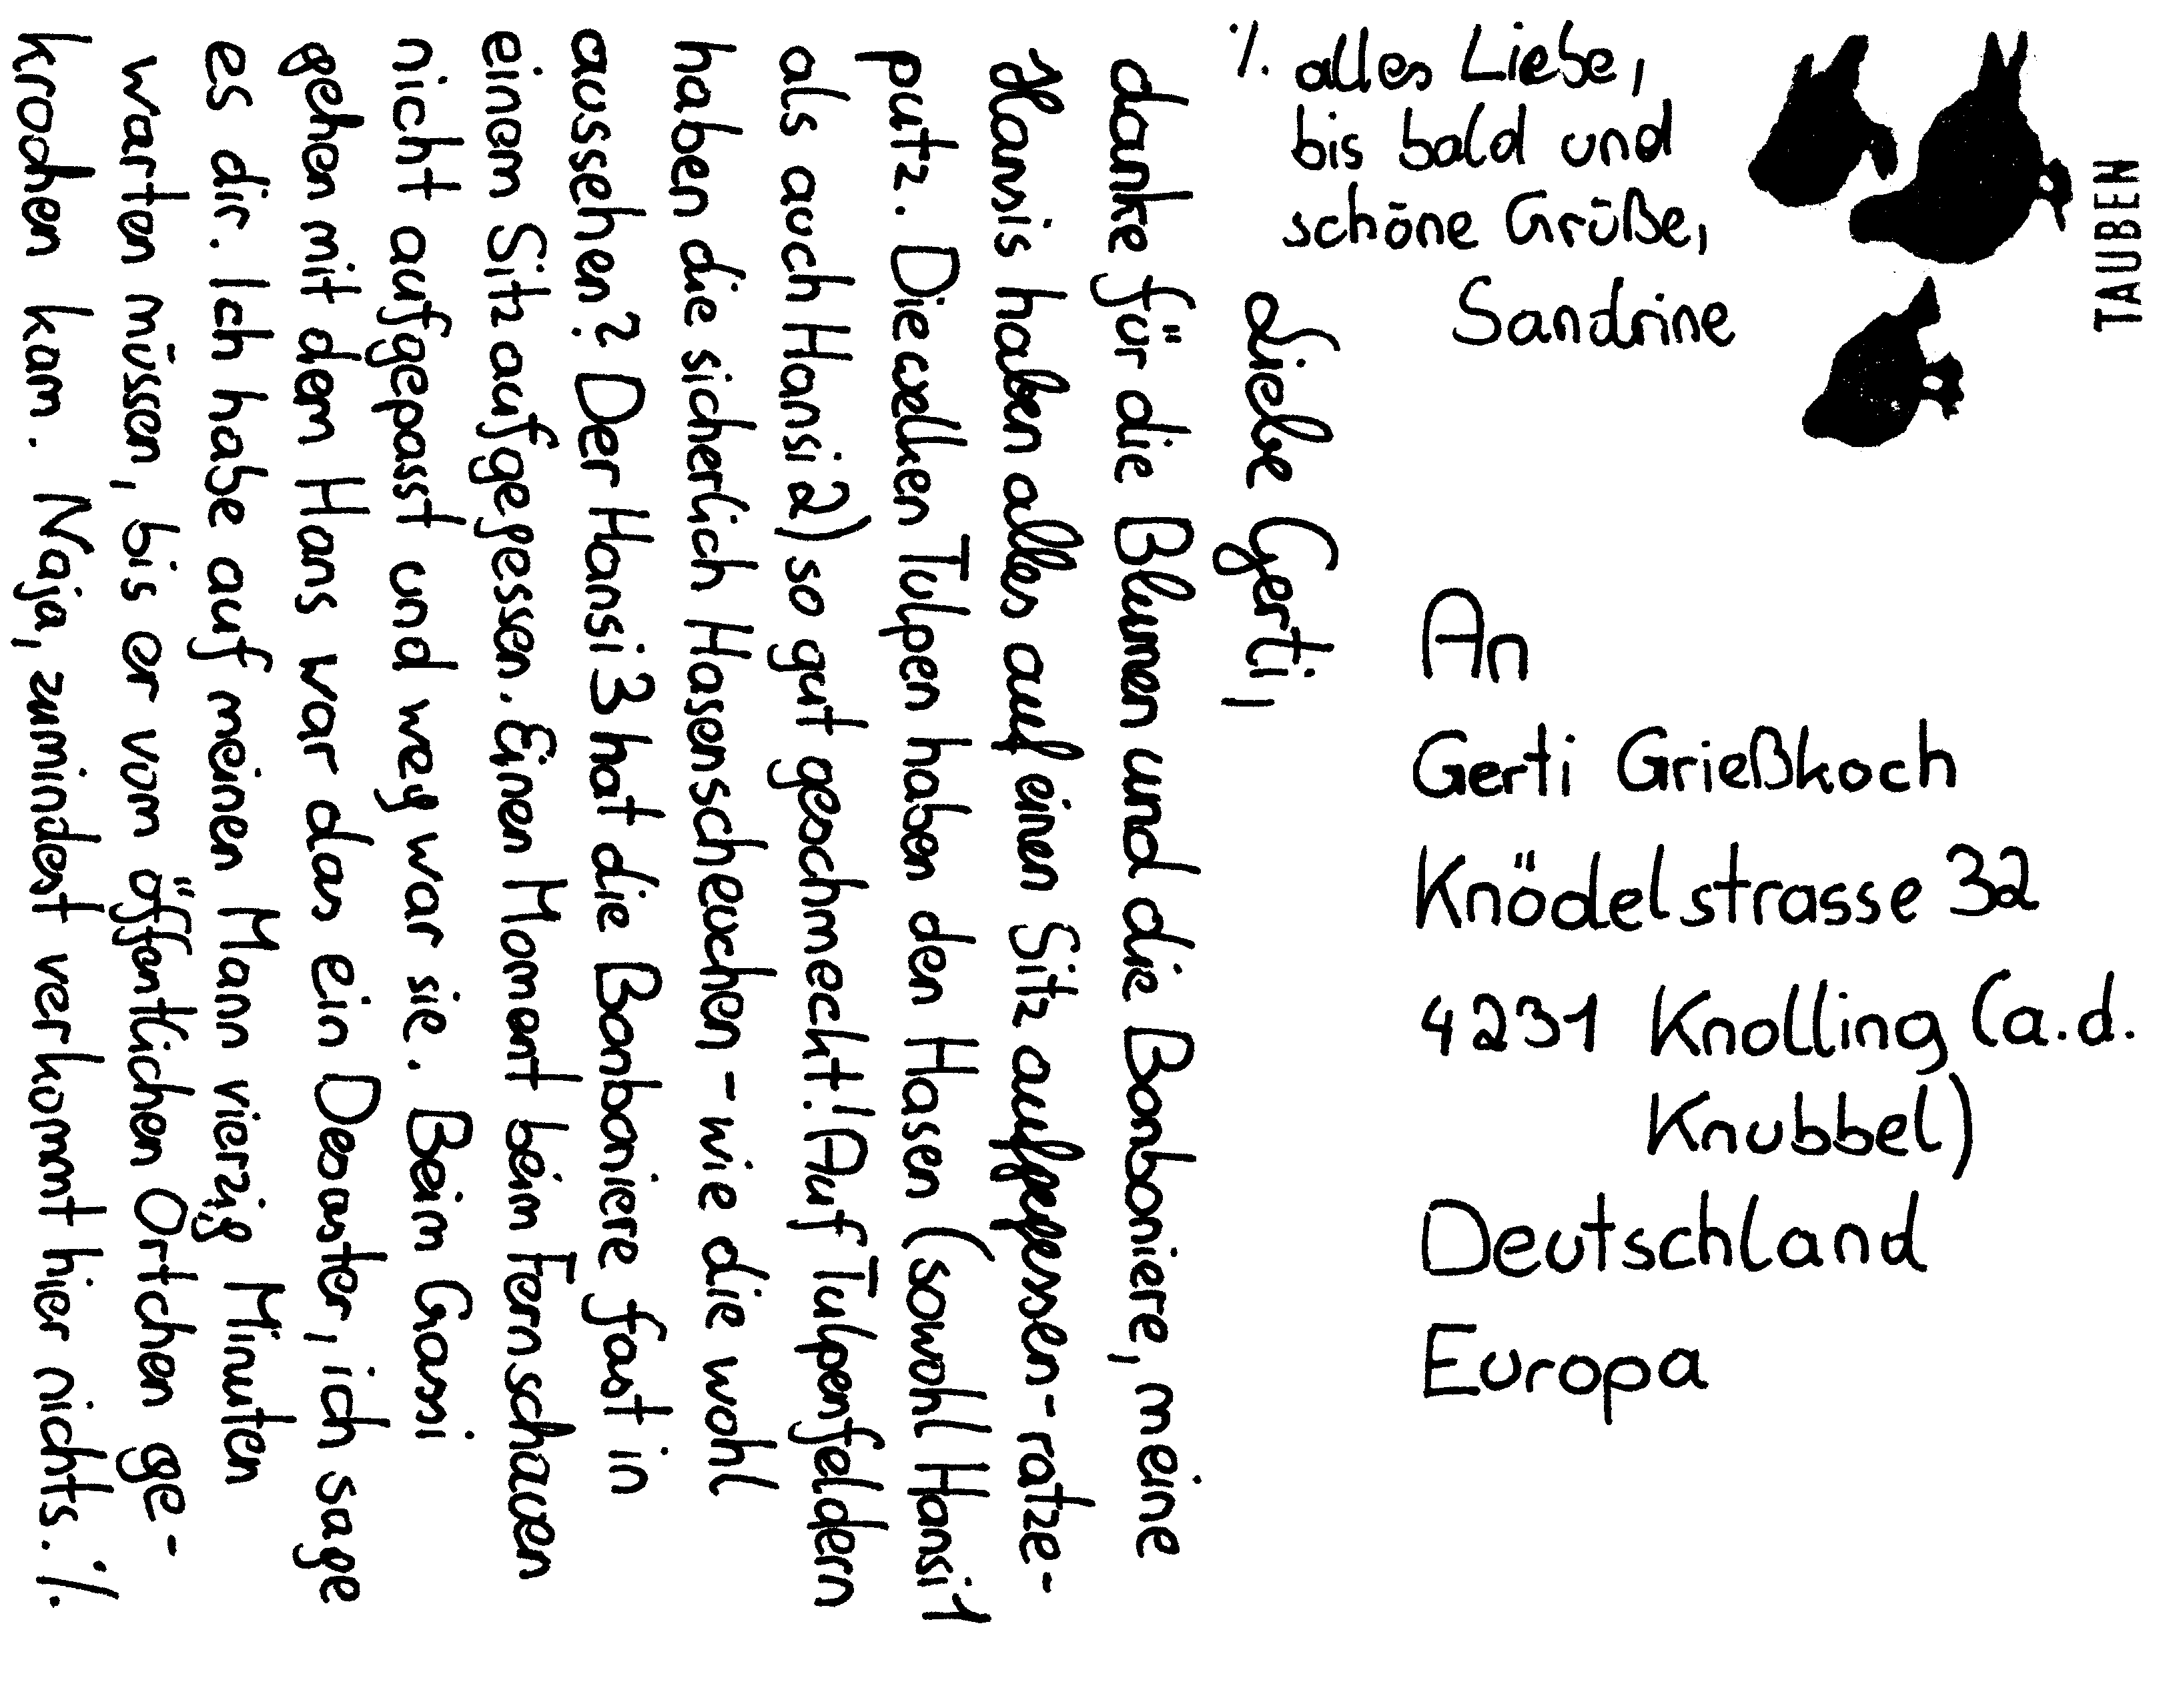 Liebe Gerti,
danke für die Blumen und die Bonboniere, meine
Hansis haben alles auf einen Sitz aufgefressen - ratze-
putz. Die welken Tulpen haben den Hasen (sowohl Hansi 1
als auch Hansi 2) so gut geschmeckt! (Auf Tulpenfeldern
haben die sicherlich Hasenscheuchen - wie die wohl
aussehen? Der Hansi 3 hat die Bonboniere fast in
einem Sitz aufgegessen. Einen Moment beim Fernschauen
nicht aufgepasst und weg war sie. Beim Gassi
gehen mit dem Hans war das ein Desaster, ich sage
es dir. Ich habe auf meinen Mann vierzig Minuten
warten müssen, bis er vom öffentlichen Örtchen ge-
krochen kam. Naja, zumindest verkommt hier nichts. ·/.
·/. alles Liebe,
bis bald und
schöne Grüße,
Sandrine
TAUBEN
An
Gerti Grießkoch
Knödelstrasse 32
4231 Knolling (a.d.
Knubbel)
Deutschland
Europa